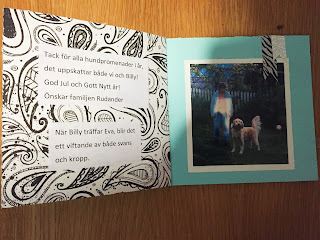 Tack för alla hundpromenader i år,
det uppskattar både vi och Billy!
God Jul och Gott Nytt år!
Önskar familjen Rudander
När Billy träffar Eva, blir det
ett viftande av både svans
och kropp.